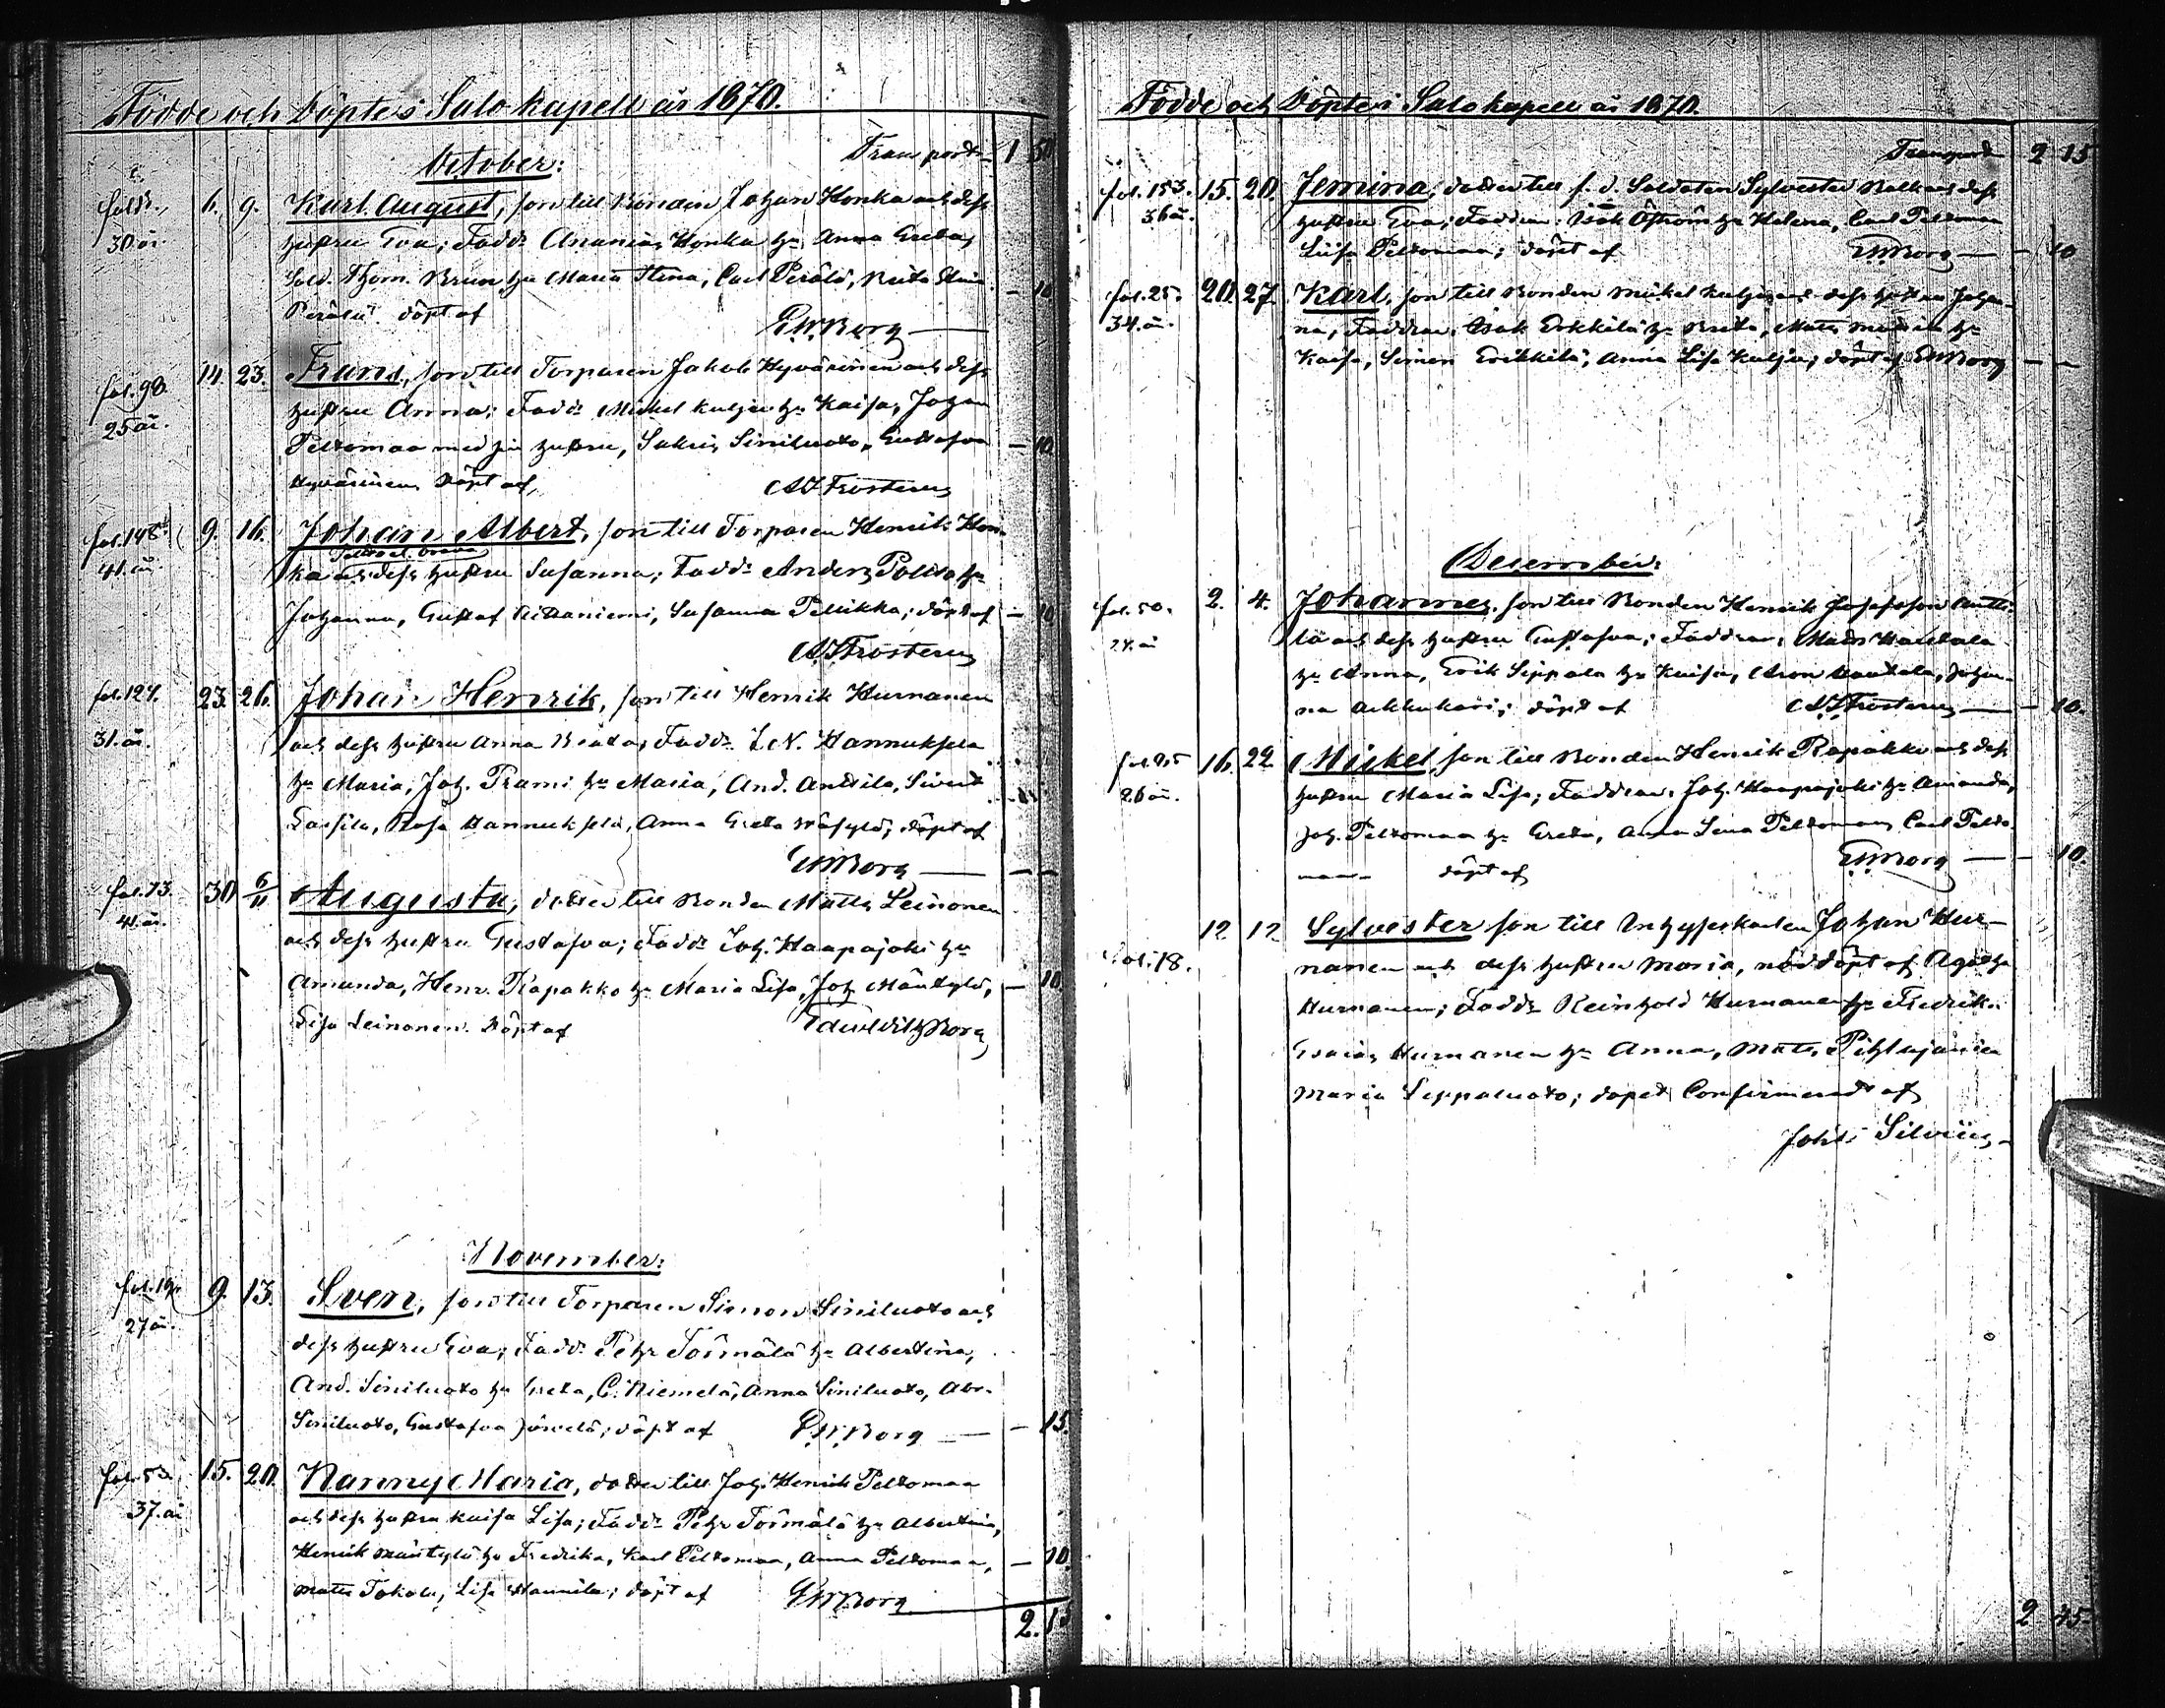 Födde och Döpte i Salo kapell år 1870.
October: Transport 1 50
30 år. 6. 9. Karl August, son till Bonden Johan Honka och dess
hustru Eva; Fadd: Ananias Honka hu Anna Greta,
Sold. Thom. Brun hu Maria Stina, Carl Perälä, Brita Stina — 10
Perälä. döpt af E.W.Borg
fol. 90. 25 år. 14. 23. Frans, son till Torparen Jakob Hyvärinen och dess
hustru Anna; Fadd: Mickel Kulju hu Kaisa, Johan
Peltomaa med sin hustru, Sakris Siniluoto, Gustafva — 10
Hyvärinen. Döpt af A.F.Frosterus
fol. 148 41 år. 9. 16. Johan Albert, son till Torparen Henrik Hon-
ka och dess hustru Susanna; Fadd: Anders Poltto hu
Johanna, Gustaf Aittaniemi, Susanna Pelkikka; döpt af — 10
A.F.Frosterus
fol. 127. 31 år. 23. 26. Johan Henrik, son till Henrik Hurnanen
och dess hustru Anna Beata; Fadd: Z.N. Hannuksela
hu Maria, Joh. Prami hu Maria, And. Anttila, Sivert
Lassila, Rosa Hannuksela, Anna Greta döpt af
E.W.Borg — —
fol. 73. 41 år. 30 6/11 Augusta, dotter till Bonden Matts Leinonen
och dess hustru Gustafva; Fadd: Joh. Haapajoki hu
Amanda, Henr. Rapakko hu Maria Lisa, Joh Mäntylä, — 10
Lisa Leinonen. Döpt af Edvard Wilh Borg
November:
27 år. 9. 13. Sven, son till Torparen Simon Siniluoto och
dess hustru Eva; Fadd: Pehr Törmälä hu Albertina,
And. Siniluoto hu Greta, C. Niemelä, Anna Siniluoto, Abr.
Siniluoto, Gustafva Järvelä; döpt af E.W.Borg — 15.
fol. 53. 37 år 15. 20. Nanny Maria, dotter till Joh. Henrik Peltomaa
och dess hustru Kaisa Lisa; Fadd: Pehr Törmälä hu Albertina,
Henrik Mäntylä hu Fredrika, Karl Peltomaa, Anna Peltomaa, — 10.
Matts Tokola, Lisa Hannila; döpt af E.W.Borg
2. 15
Födde och Döpte i Salo kapell år 1870.
Transport 2 15
fol. 153. 36 år. 15. 20. Jemina, dotter till f. d. Soldaten Sylvester Balk och dess
hustru Eva; Faddrar: Isak Öström hu Helena, Carl Peltomaa
Liisa Peltomaa; döpt af E.W.Borg — 10
fol. 25. 34 år. 20. 27 Karl, son till Bonden Mickel Kulju och dess hustru Johan-
na, Faddrar, Isak Erkkilä hu Brita, Matts hu
Kaisa, Simon Erikkilä, Anna Lisa Kulju; döpt af E.W.Borg — —
December:
fol. 50. 24 år 2. 4. Johannes, son till Bonden Henrik Josefsson Antti-
la och dess hustru Gustafva; Faddrar: Matts Hautala
hu Anna, Erik Seppälä hu Kaisa, Aron Hautala, Johan-
na döpt af A.F.Frosterus — 10.
26 år. 16. 22 Mickel, son till Bonden Henrik Rapakko och dess
hustru Maria Lisa; Faddrar: Joh. Haapajoki hu Amanda,
Joh. Peltomaa hu Greta, Anna Lena Peltomaa, Carl Pelto-
maa döpt af E.W.Borg — 10.
fol. 18. 12 12 Sylvester son till Inhyseskarlen Johan Hur-
nanen och dess hustru Maria, nöddöpt af Agatha
Hurnanen; Fadd: Reinhold Hurnanen hu Fredrika
Esaias Hurnanen hu Anna, Matts Pihlajamäen
Maria Leppäluoto; dopet Confirmeradt af
Johs Silvius
2 45.